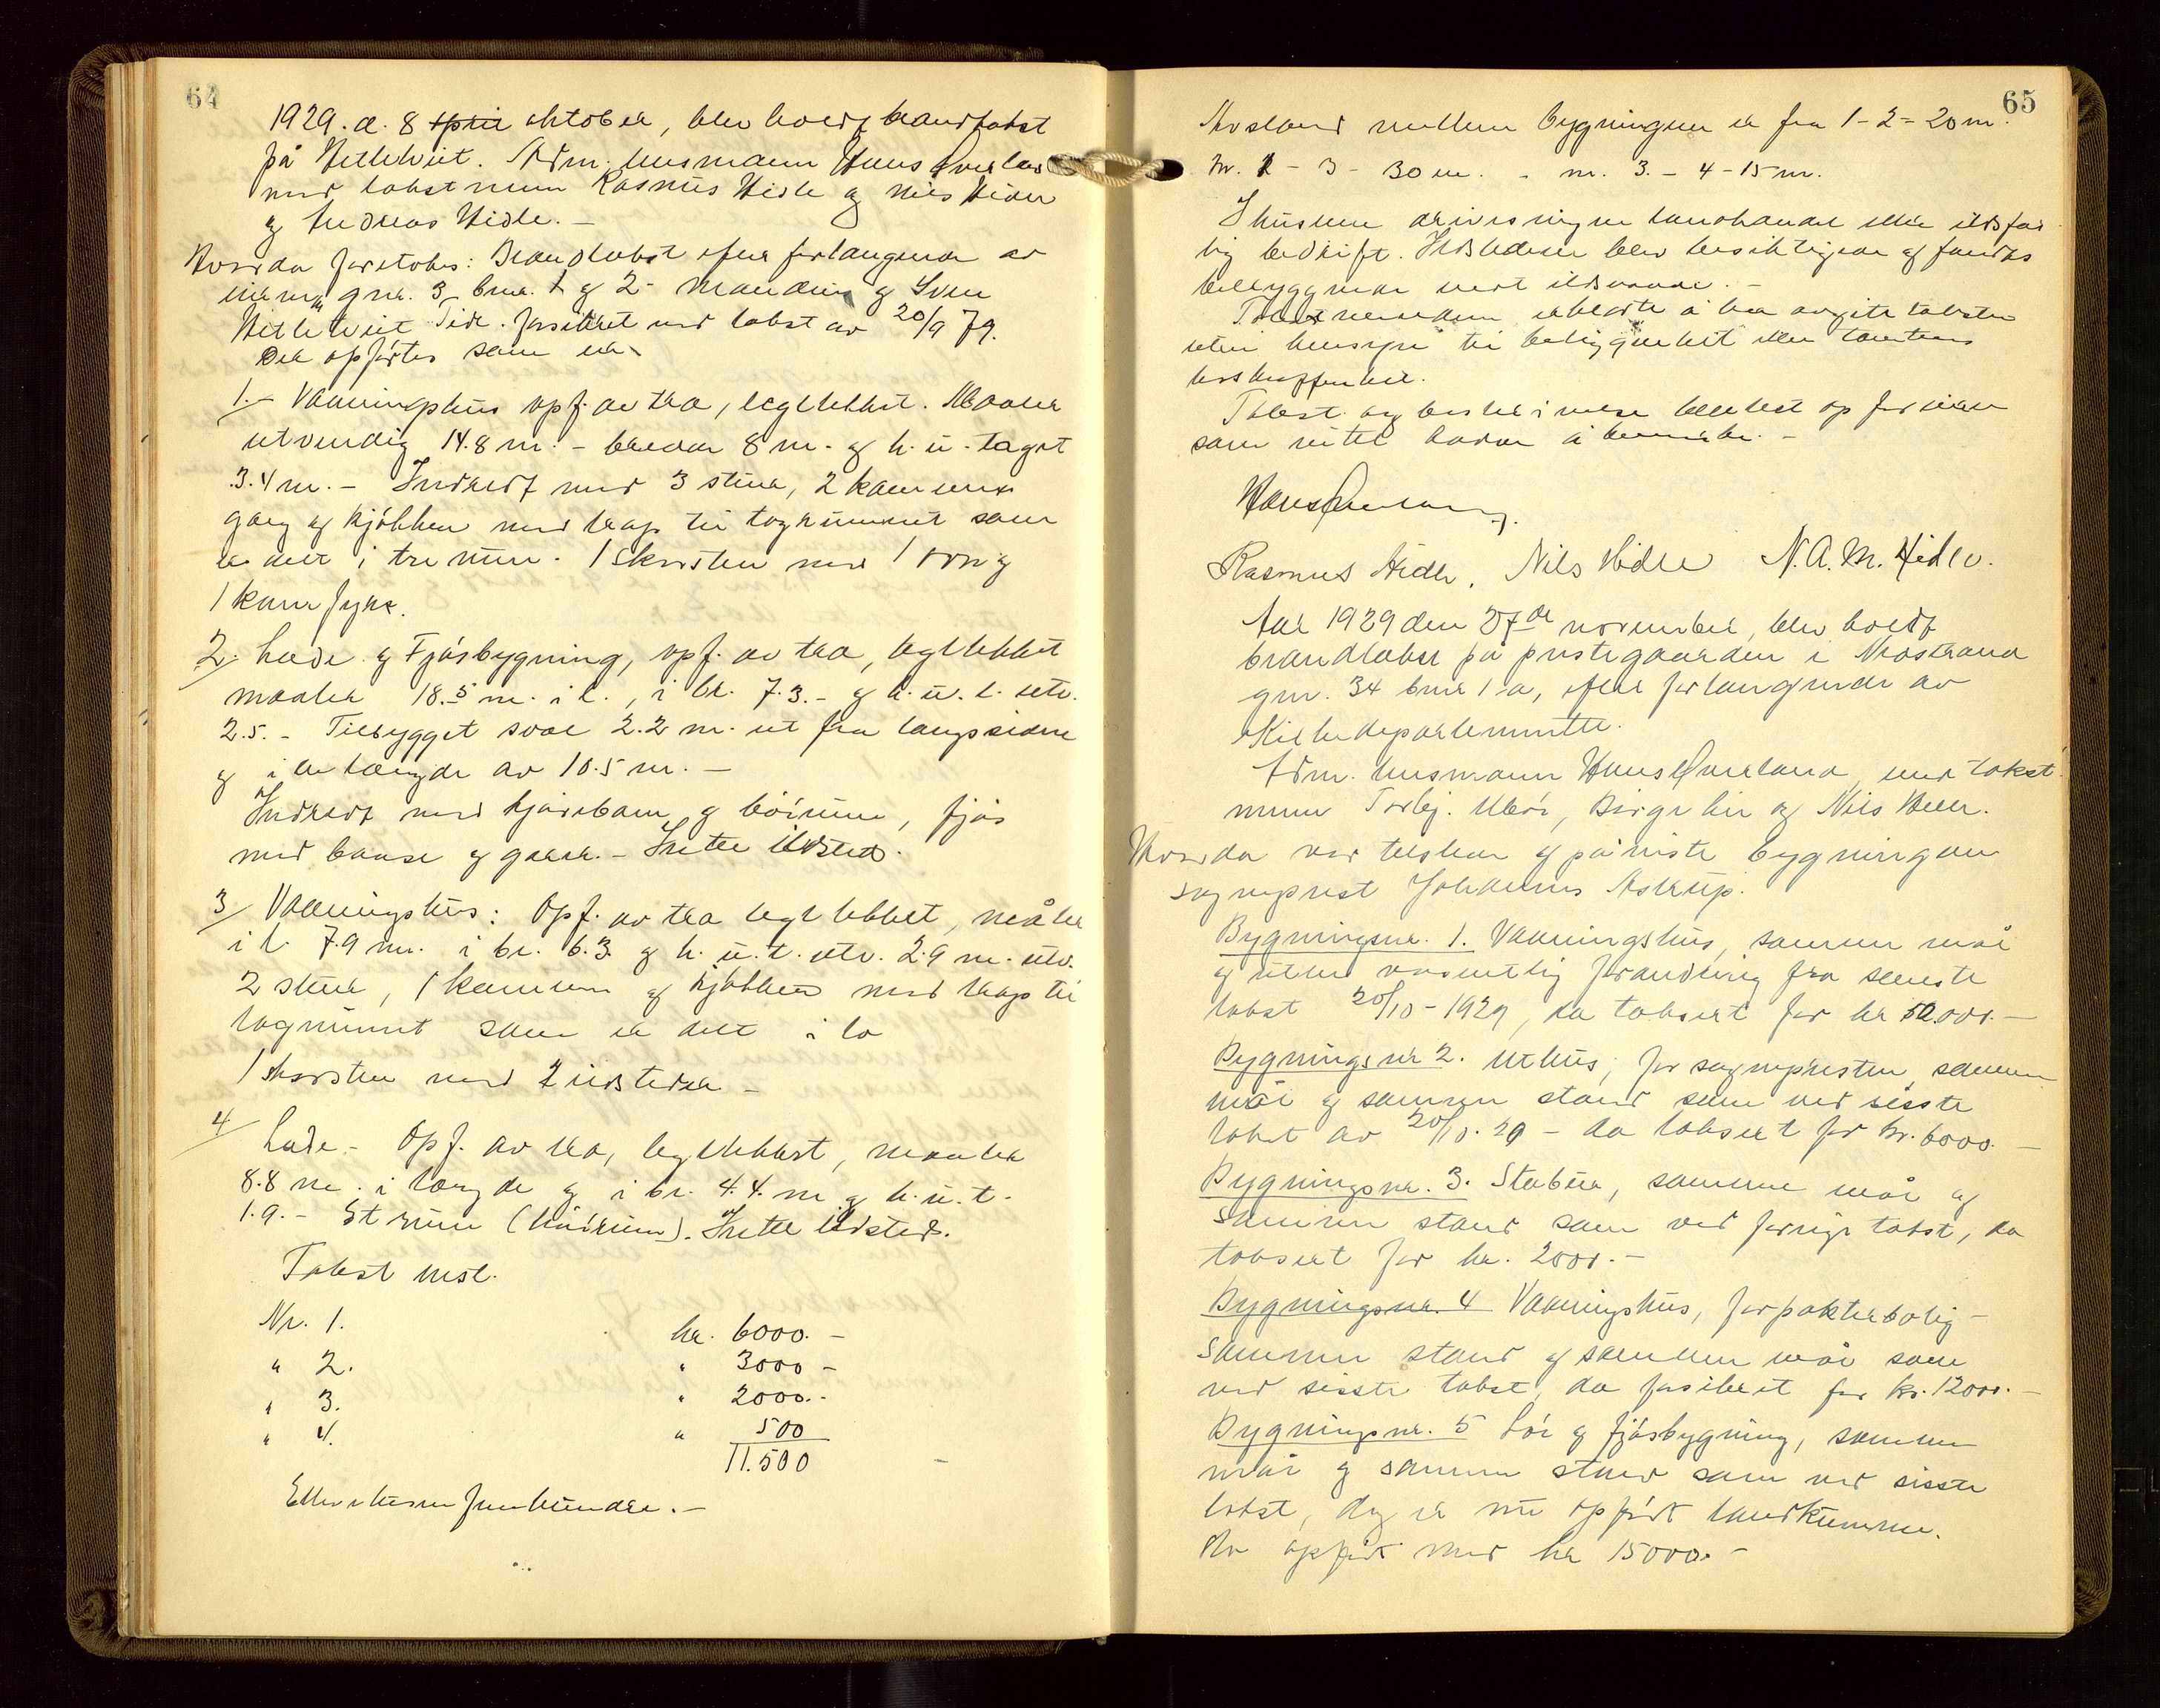 64
1929. d. 8 april oktober, blev holdt brandtakst
på Hetletveit. Adm. lensmann Hans Overland
med takstmenn Rasmus Hidle og Nils Hidle
og Andreas Hidle. –
Hvorda foretokes: Brandtakst efter forlangende av
eierne gnr. 3 bnr. 1 og 2 - og Sven
Hetletveit Tidl. forsikret med takst av 20/9 79.
Der opførtes som er
1. – Vaaningshus opf. av træ, tegltekket. Maaler
utvendig 14.8 m. – bredde 8 m. og h. u. taget
3.4 m. – Indredt med 3 stuer, 2 kammers
gang og kjøkken med trap til tagrummet som
er delt i tre rum. 1 skorsten med 1 ovn og
1 komfyr.
2. Lade og Fjøsbygning, opf. av træ, tegltekket
maaler 18.5 m. i l., i br. 7.3. – og h. u. t. utv.
2.5. – Tilbygget sval 2.2 m. ut fra langsiden
og i en længde av 10.5 m. –
Indredt med kjørebane og høirum, fjøs
med baase og gard. – Intet ildsted.
3 Vaaningshus: Opf. av træ tegltekket, måler
i l. 7.9 m. i br. 6.3 og h. u. t. utv. 2.9 m. utv.
2 stuer, 1 kammers og kjøkken med trap til
tagrummet som er delt i to
1 skorsten med 2 ildsteder –
4 Lade – Opf. av træ, tegltekket, maaler
8.8 m. i længde og i br. 4.4. m og h. u. t.
1.9. – Et rum (høirum). Intet ildsted.
Takst
Nr. 1. kr. 6000. –
" 2. " 3000 –
" 3. " 2000. –
" 4. " 500
11.500 –
Ellevetusen femhundre. –
65
Avstand mellem bygningen er fra 1 - 2 = 20 m.
Nr. 1 - 3 - 30 m. - nr. 3. - 4 - 15 m.
I husene drives ingen landhandel eller ildsfar
lig bedrift. Ildstedene blev besiktiget og fandtes
betryggende mot ildsvaade. –
Takstmennene erklærte å ha avgitt taksten
uten hensyn til beliggenhet eller tomtens
beskaffenhet.
Takst og beskrivelse blev lest op for eieren
som intet hadde å bemerke. –
Hans Overland
Rasmus Hidle, Nils Hidle N. A. M. Hidle.
Aar 1929 den 27de november, blev holdt
brandtakst på prestegaarden i Nedstrand
gnr. 34 bnr 1 a, efter forlangende av
Kirkedepartementet.
Adm. lensmann Hans Overland med takst
menn Torbj. Ubø, Børge Lie og Nils
Hvorda var tilstede og påviste bygningene
sogneprest Johannes Astrup.
Bygningsnr. 1. Vaaningshus, samme mål
og uten vesentlig forandring fra seneste
takst 20/10 - 1929, da taksert for kr 52.000. –
Bygningsnr 2. Uthus, for sognepresten, samme
mål og samme stand som ved siste
takst av 20/10. 29 – da taksert for kr. 6000. –
Bygningsnr. 3. Stabur, samme mål og
samme stand som ved forrige takst, da
taksert for kr. 2000. –
Bygningsnr. 4 Vaaningshus, forpakterbolig –
samme stand og samme mål som
ved sisste takst, da forsikret for kr. 12000. –
Bygningsnr. 5 Løe og fjøsbygning, samme
mål og samme stand som ved sisste
takst, dog er nu opført landkumme.
Nu opført med kr 15000. –